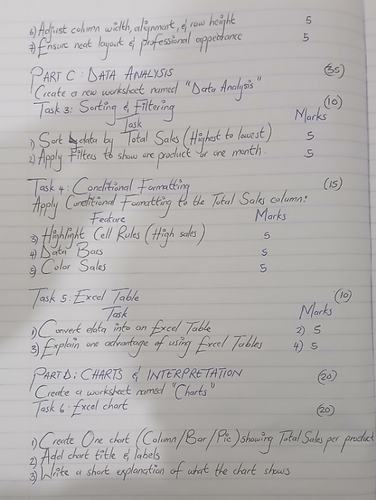 6) Adjust column width, alignment, & row height 5
7) Ensure neat layout & professional appearance 5
PART C: DATA ANALYSIS (35)
Create a new worksheet named "Data Analysis"
Task 3: Sorting & Filtering (10)
Task Marks
1) Sort data by Total Sales (Highest to lowest) 5
2) Apply Filters to show one product or one month 5
Task 4: Conditional Formatting (15)
Apply Conditional Formatting to the Total Sales column:
Feature Marks
3) Highlight Cell Rules (High sales) 5
4) Data Bars 5
5) Color Sales 5
Task 5: Excel Table (10)
Task Marks
1) Convert data into an Excel Table 2) 5
3) Explain one advantage of using Excel Tables 4) 5
PART D: CHARTS & INTERPRETATION (20)
Create a worksheet named "Charts"
Task 6: Excel chart (20)
1) Create One chart (Column/Bar/Pie) showing Total Sales per product
2) Add chart title & labels
3) Write a short explanation of what the chart shows